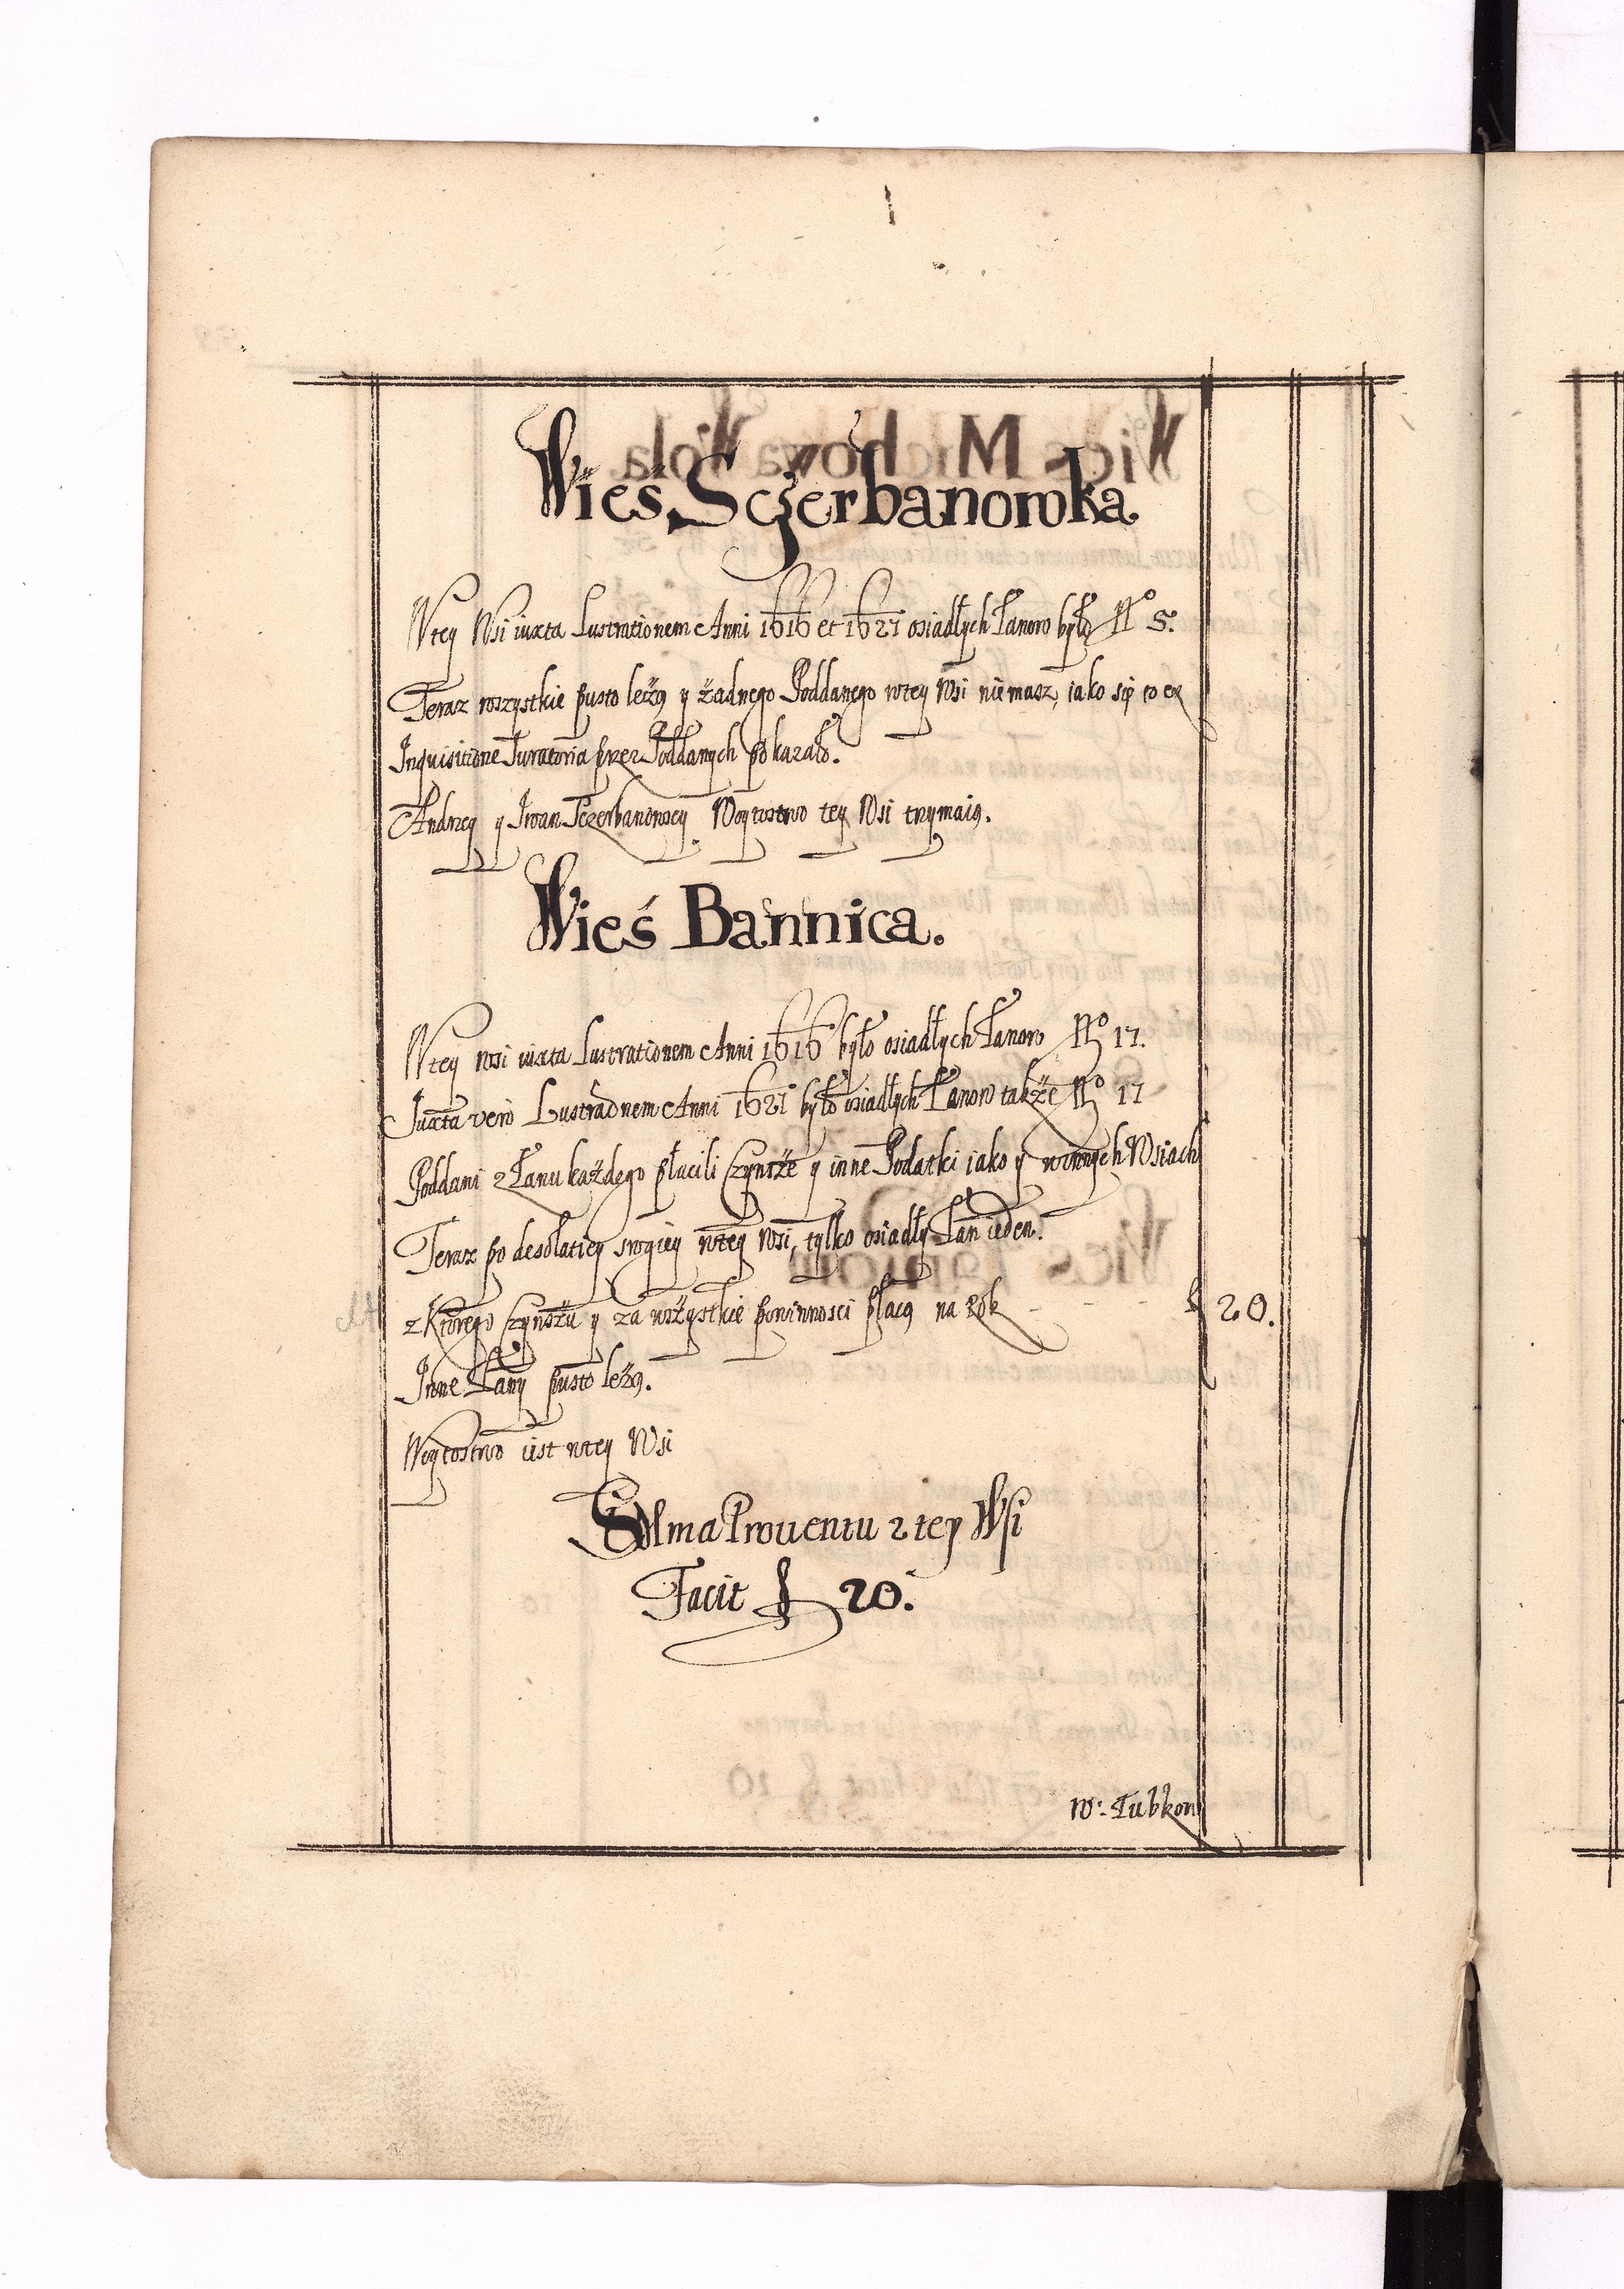 Wieś Sczerbanowka
W tey Wsi iuxta Lustrationem Anni 1616 et 1621 osiadłych Łanow było No 5.
Teraz wszystkie pusto leżą y żadnego Poddanego w tey Wsi nie masz, iako się to ex
Inquisitione Iuratoria przez Poddanych pokazało.
Andrzey y Iwan Sczerbanowscy Woytostwo tey Wsi trzymaią.
Wieś Bannica.
W tey wsi iuxta Lustrationem Anni 1616 było osiadłych Łanow No 17.
Iuxta vero Lustrationem Anni 1621 było osiadłych Łanow także No 17
Poddani z Łanu każdego płacili Czynsze y inne Podatki iako y w innych Wsiach
Teraz po desolatiey srogiey w tey Wsi, tylko osiadły Łan ieden.
z Ktorego Czynszu y za wszystkie powinnosci płacą na Rok - - - - f 20.
Inne Łany pusto leżą.
Woytostwo iest w tey Wsi
Summa Prouentu z tey Wsi
Facit f 20.
W: Łubkow